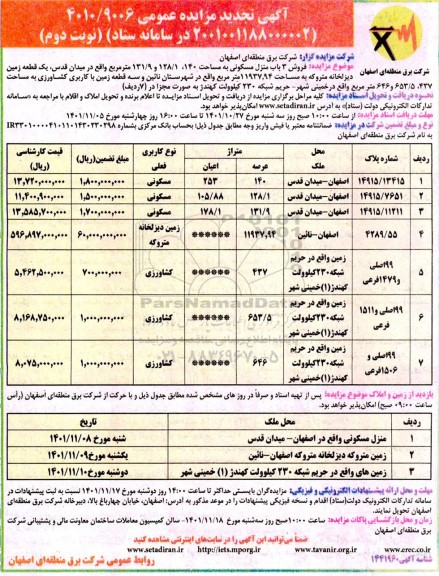 آگهی تجدید مزایده عمومی ۴۰۱۰/۹۰۰۶
۲۰۰۱۰۰۱۱۸۸۰۰۰۰۰۲) در سامانه ستاد) (نوبت دوم)
شرکت برق منطقه‌ای اصفهان
شرکت مزایده گزار: شرکت برق منطقه‌ای اصفهان
موضوع مزایده: فروش ۳ باب منزل مسکونی به مساحت ۱۴۰، ۱۲۸/۱ و ۱۳۱/۹ مترمربع واقع در میدان قدس، یک قطعه زمین
دیزلخانه متروکه به مساحت ۱۱۹۳۷/۹۴ متر مربع واقع در شهرستان نائین و سه قطعه زمین با کاربری کشاورزی به مساحت
۴۳۷، ۶۵۳/۵ و ۶۴۶ متر مربع واقع درخمینی شهر - حریم شبکه ۲۳۰ کیلوولت کهندژ به صورت مجزا در (۷ردیف)
نحوه دریافت و تحویل اسناد مزایده: کلیه مراحل برگزاری مزایده از دریافت و تحویل اسناد مزایده تا اعلام برنده و تحویل املاک و اقلام با مراجعه به سامانه
تدارکات الکترونیکی دولت (ستاد) به آدرس www.setadiran.ir امکان‌پذیر خواهد بود.
مهلت دریافت اسناد مزایده: از ساعت ۱۰:۰۰ صبح روز سه شنبه مورخ ۱۴۰۱/۱۰/۲۷ تا ساعت ۱۶:۰۰ روز چهارشنبه مورخ ۱۴۰۱/۱۱/۰۵
نوع و مبلغ تضمین شرکت در مزایده: ضمانتنامه معتبر یا فیش واریز وجه مطابق جدول ذیل) بحساب بانک مرکزی بشماره
به نام شرکت برق منطقه‌ای اصفهان
ردیف | شماره پلاک | محل ملک | متراژ عرصه | متراژ اعیان | نوع کاربری فعلی | مبلغ تضمین(ریال) | قیمت کارشناسی (ریال)
۱ | ۱۴۹۱۵/۱۳۴۱۵ | اصفهان-میدان قدس | ۱۴۰ | ۲۵۳ | مسکونی | ۱,۸۰۰,۰۰۰,۰۰۰ | ۱۳,۷۲۰,۰۰۰,۰۰۰
۲ | ۱۴۹۱۵/۷۶۵۱ | اصفهان-میدان قدس | ۱۲۸/۱ | ۱۰۵/۸۸ | مسکونی | ۱,۵۰۰,۰۰۰,۰۰۰ | ۱۱,۴۰۰,۹۰۰,۰۰۰
۳ | ۱۴۹۱۵/۱۱۲۱۱ | اصفهان-میدان قدس | ۱۳۱/۹ | ۱۷۸/۱ | مسکونی | ۱,۷۰۰,۰۰۰,۰۰۰ | ۱۳,۵۸۵,۷۰۰,۰۰۰
۴ | ۴۲۸۹/۵۵ | اصفهان-نائین | ۱۱۹۳۷,۹۴ | ****** | زمین دیزلخانه متروکه | ۶۰,۰۰۰,۰۰۰,۰۰۰ | ۵۹۶,۸۹۷,۰۰۰,۰۰۰
۵ | ۹۹اصلی و۱۴۷۹فرعی | زمین واقع در حریم شبکه۲۳۰کیلوولت کهندژ(۱)خمینی شهر | ۴۳۷ | ****** | کشاورزی | ۷۰۰,۰۰۰,۰۰۰ | ۵,۴۶۲,۵۰۰,۰۰۰
۶ | ۹۹اصلی و۱۵۱۱ فرعی | زمین واقع در حریم شبکه۲۳۰کیلوولت کهندژ(۱)خمینی شهر | ۶۵۳/۵ | ****** | کشاورزی | ۱,۰۰۰,۰۰۰,۰۰۰ | ۸,۱۶۸,۷۵۰,۰۰۰
۷ | ۹۹اصلی و ۱۵۰۶فرعی | زمین واقع در حریم شبکه۲۳۰کیلوولت کهندژ(۱)خمینی شهر | ۶۴۶ | ****** | کشاورزی | ۱,۰۰۰,۰۰۰,۰۰۰ | ۸,۰۷۵,۰۰۰,۰۰۰
بازدید از زمین و املاک موضوع مزایده: پس از تهیه اسناد و صرفاً در روز های مشخص شده مطابق جدول ذیل و با حرکت از شرکت برق منطقه‌ای اصفهان (رأس
ساعت ۰۹:۰۰ صبح) امکان‌پذیر خواهد بود.
ردیف | محل ملک | تاریخ
۱ | منزل مسکونی واقع در اصفهان- میدان قدس | شنبه مورخ ۱۴۰۱/۱۱/۰۸
۲ | زمین متروکه دیزلخانه متروکه اصفهان-نائین | یکشنبه مورخ ۱۴۰۱/۱۱/۰۹
۳ | زمین های واقع در حریم شبکه ۲۳۰ کیلوولت کهندژ (۱) خمینی شهر | دوشنبه مورخ ۱۴۰۱/۱۱/۱۰
مهلت و محل ارائه پیشنهادات الکترونیکی و فیزیکی: مزایده‌گران بایستی حداکثر تا ساعت ۱۴:۰۰ روز دوشنبه مورخ ۱۴۰۱/۱۱/۱۷ نسبت به ثبت پیشنهادات در
سامانه تدارکات الکترونیک دولت(ستاد) اقدام و نسخه فیزیکی پیشنهادات را در موعد مذکور به آدرس: اصفهان، خیابان چهارباغ بالا، دبیرخانه شرکت برق منطقه‌ای
اصفهان تحویل نمایند.
زمان و محل بازگشایی پاکات مزایده: ساعت ۱۰:۰۰ صبح روز سه‌شنبه مورخ ۱۴۰۱/۱۱/۱۸- سالن کمیسیون معاملات ساختمان معاونت مالی و پشتیبانی شرکت
برق منطقه‌ای اصفهان
ضمناً می‌توانید این آگهی را در سایت‌های اینترنتی مشاهده نمایید
www.erec.co.ir www.tavanir.org.ir http://iets.mporg.ir www.setadiran.ir
شناسه آگهی ۱۴۴۱۹۶۰
روابط عمومی شرکت برق منطقه‌ای اصفهان